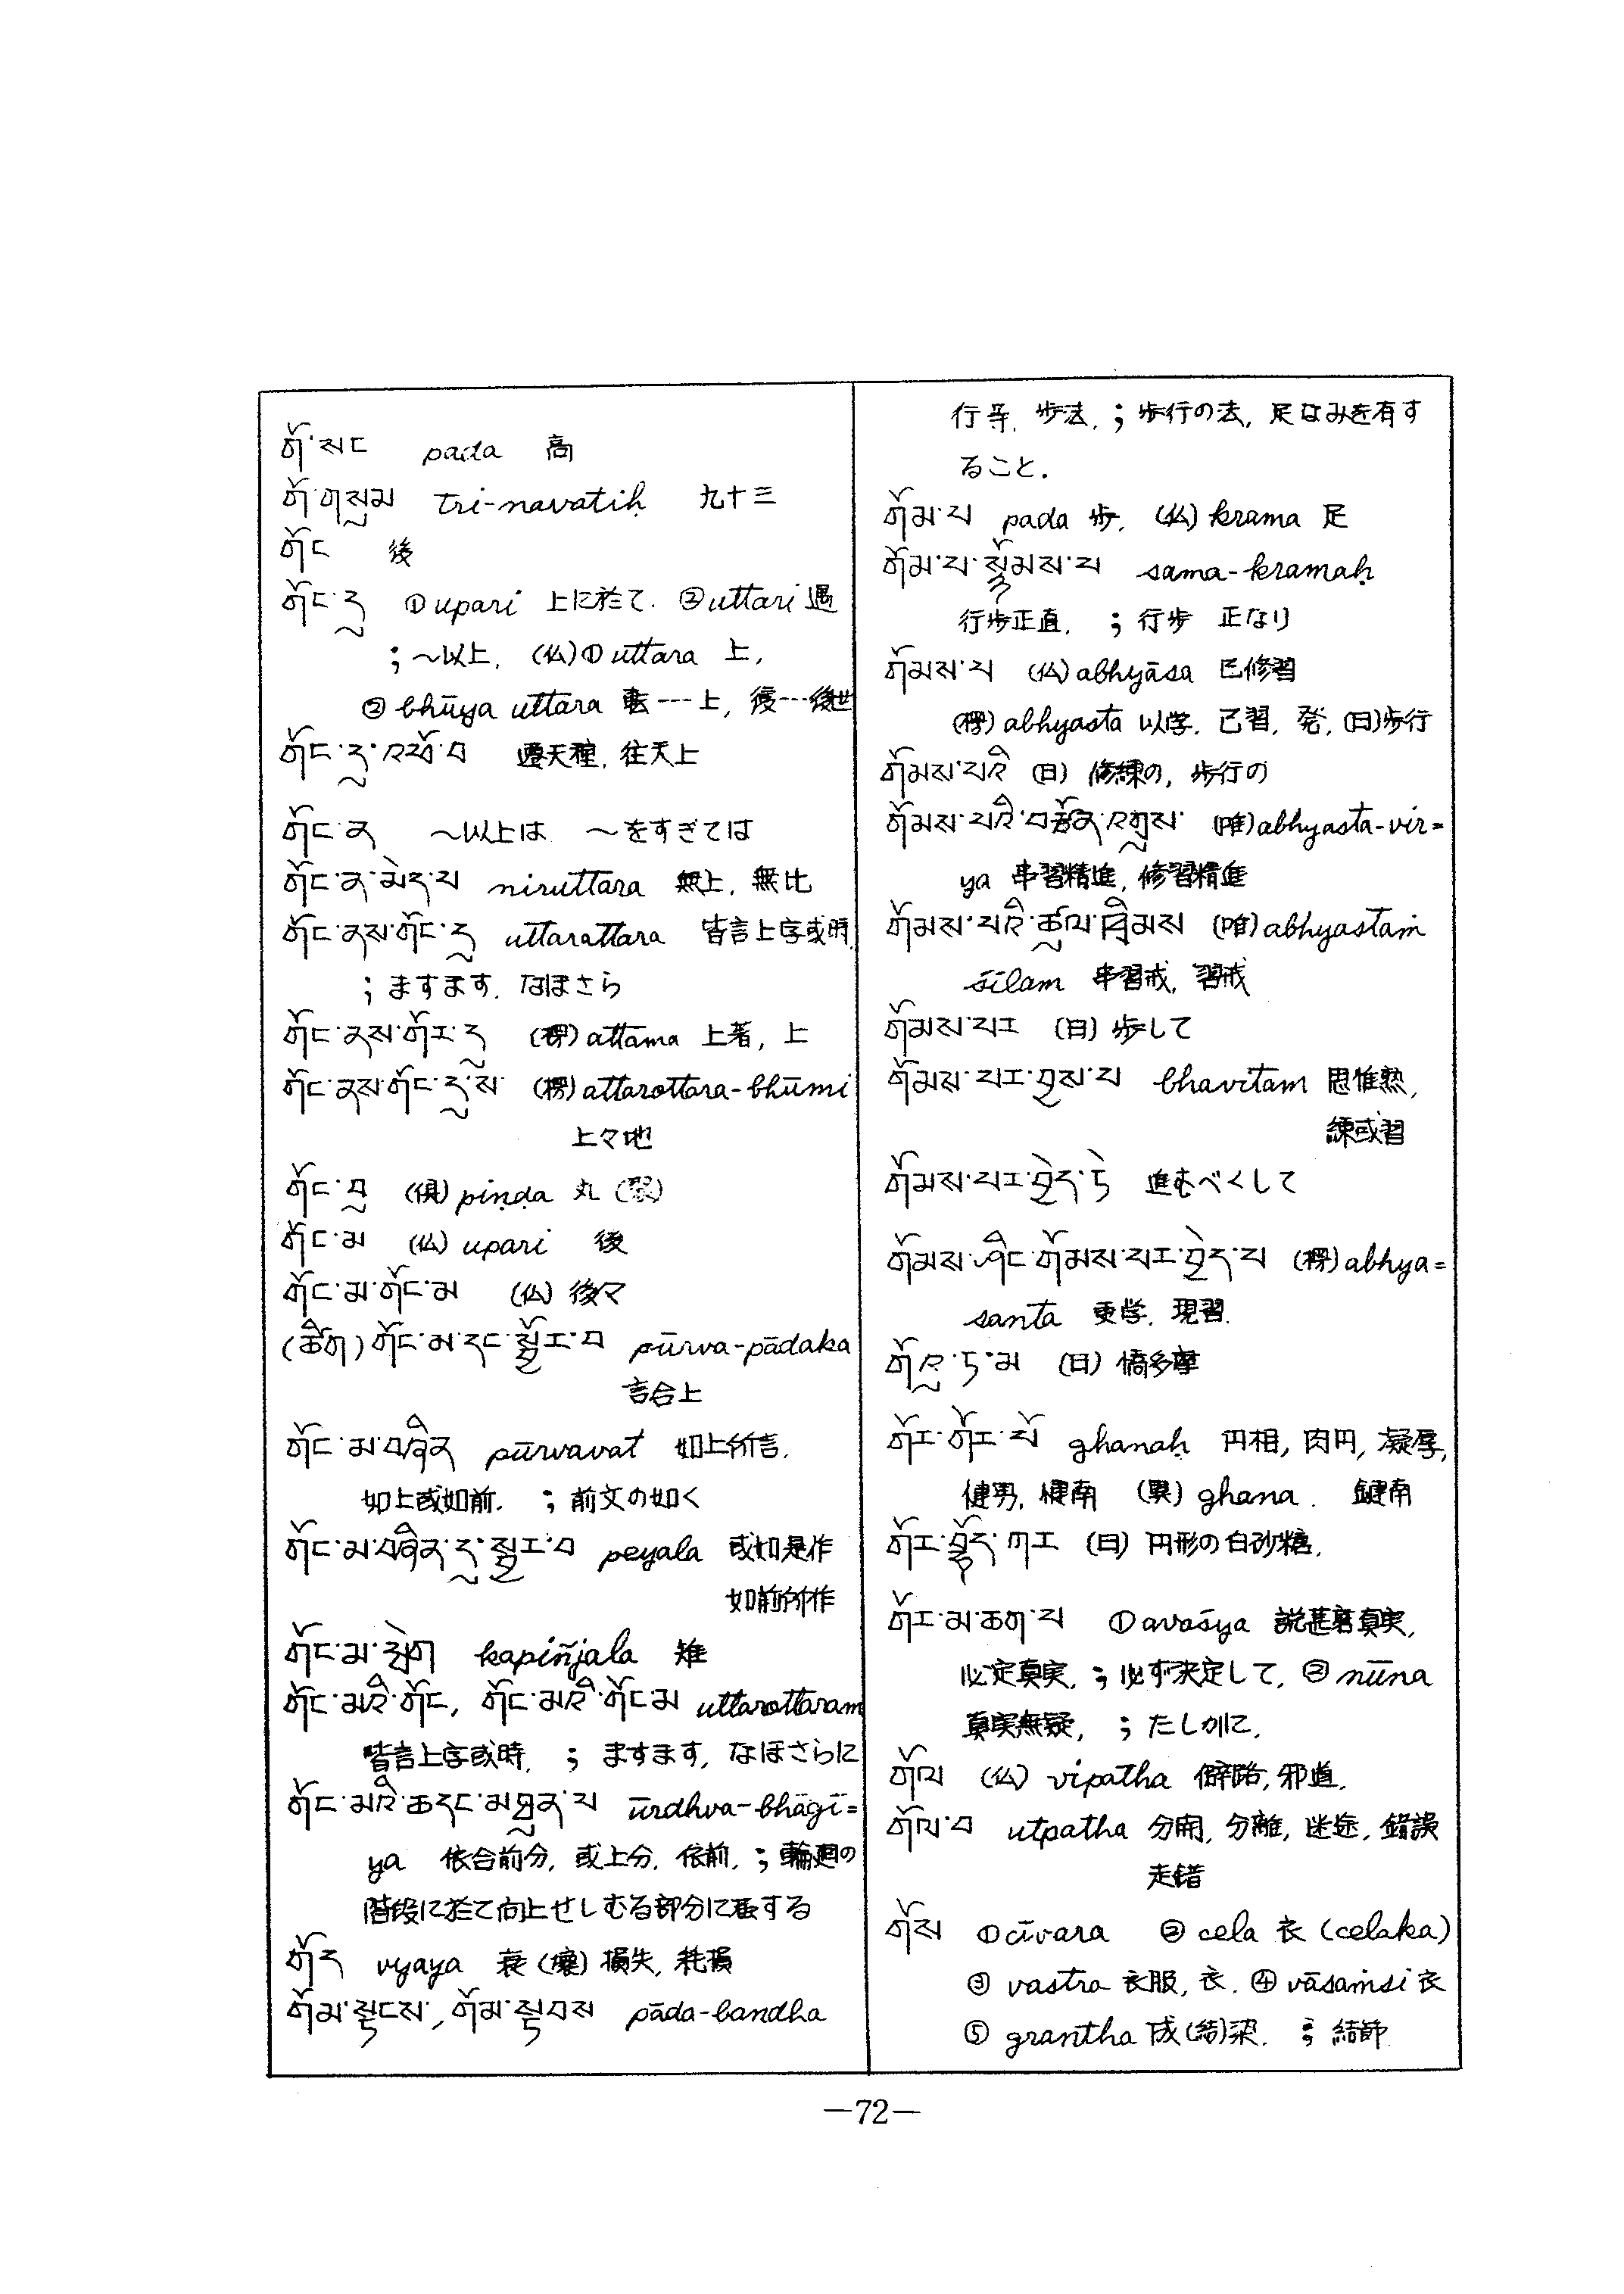 གོ་སང pada 高
གོ་གསུམ tri-navatiḥ 九十三
གོང 後
གོང་དུ ①upari 上に於て. ②uttari 過
;〜以上, (仏)① uttara 上,
② bhūya uttara 転---上, 後---後世
གོང་དུ་འཕོ་བ 遷天種, 往天上
གོང་ན 〜以上は 〜をすぎては
གོང་ན་མེད་པ niruttara 無上, 無比
གོང་ནས་གོང་དུ uttarattara 皆言上字或時,
; ますます, なほさら
གོང་ནས་གོར་དུ (楞) attama 上著, 上
གོང་ནས་གོང་དུ་ས (楞) attarottara-bhūmi
上々地
གོང་བུ (倶) piṇḍa 丸 (聚)
གོང་མ (仏) upari 後
གོང་མ་གོང་མ (仏) 後々
(ཚིག) གོང་མ་དང་སྦྱོར་བ pūrva-pādaka
言合上
གོང་མ་བཞིན pūrvavat 如上所言.
如上或如前. ; 前文の如く
གོང་མ་བཞིན་དུ་སྦྱར་བ peyala 或如是作
如前所作
གོང་མ་སྲེག kapiñjala 雉
གོང་མའི་གོང, གོང་མའི་གོངམ uttarottaram
皆言上字或時, ; ますます, なほさらに
གོང་མའི་ཆ་དང་མཐུན་པ ūrdhva-bhāgī=
ya 依合前分, 或上分, 依前, ; 輪廻の
階段に於て向上せしむる部分に
གོད vyaya 衰 (壊) 損失, 耗損
གོམ་སྟངས, གོམ་སྟབས pāda-bandha
行等, 歩法, ; 歩行の法, 足なみを有す
ること.
གོམ་པ pada 歩, (仏) krama 足
གོམ་པ་སྙོམས་པ sama-kramaḥ
行歩正直, ; 行歩 正なり
གོམས་པ (仏) abhyāsa 已修習
(楞) abhyasta 以学, 已習, 発, (日)歩行
གོམས་པའི (日) 修練の, 歩行の
གོམས་པའི་བརྩོན་འགྲུས (唯) abhyasta-vir=
ya 串習精進, 修習精進
གོམས་པའི་ཚུལ་ཁྲིམས (唯) abhyastaṁ
śīlam 串習戒, 習戒
གོམས་པར (日) 歩して
གོམས་པར་བྱས་པ bhavitam 思惟熟,
練或習
གོམས་པར་བྱེད་དེ 進むべくして
གོམས་ཤིང་གོམས་པར་བྱེད་པ (楞) abhya=
santa 更学, 現習.
གོའུ་ཏ་མ (日) 憍多摩
གོར་གོར་པོ ghanaḥ 円相, 肉円, 凝厚,
健男, 健南 (異) ghana. 鍵南
གོར་བྷོད་ཀར (日) 円形の白砂糖.
གོར་མ་ཆག་པ ①avaśya 説甚著真実,
必定真実, ; 必ず決定して, ② nūna
真実無疑, ; たしかに,
གོལ (仏) vipatha 僻路, 邪道.
གོལ་བ utpatha 分開, 分離, 迷途, 錯誤
走錯
གོས ①cīvara ② cela 衣 (celaka)
③ vastra 衣服, 衣. ④ vāsaṁsi 衣
⑤ grantha 成(結)梁. ; 結節
—72—